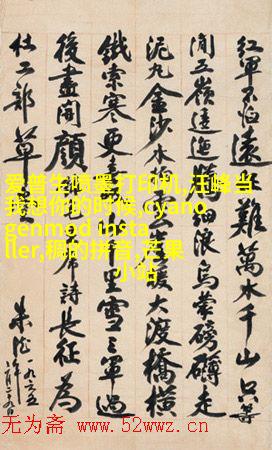 红軍不怕遠難萬水千山只等
閒五嶺逶迤騰細浪烏蒙磅礴走
泥丸金沙水暖大渡橋橫
鐵索寒更里雪三軍過
後盡開顏席詩長征為
杜工部草
朱德
一九六五
爱普生喷墨打印机,汪峰当
我想你的时候,cyano
genmod insta
ller,稠的拼音,芒果
小站
无为斋 www.52wwz.cn